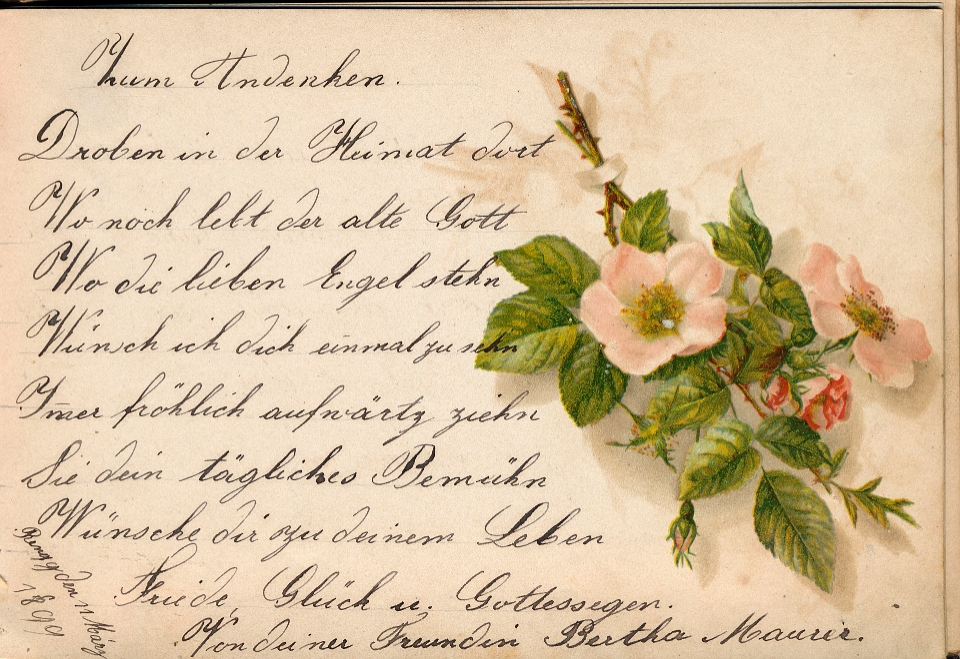 Zum Andenken.
Droben in der Heimat dort
Wo noch lebt der alte Gott
Wo die lieben Engel stehn
Wünsch ich dich einmal zu sehn
Im̅er fröhlich aufwärtz ziehn
Sie dein tägliches Bemühn
Wünsche dir zu deinem Leben
Friede, Glück u. Gottessegen.
Von deiner Freundin Bertha Maurer.
den 11 März
1899